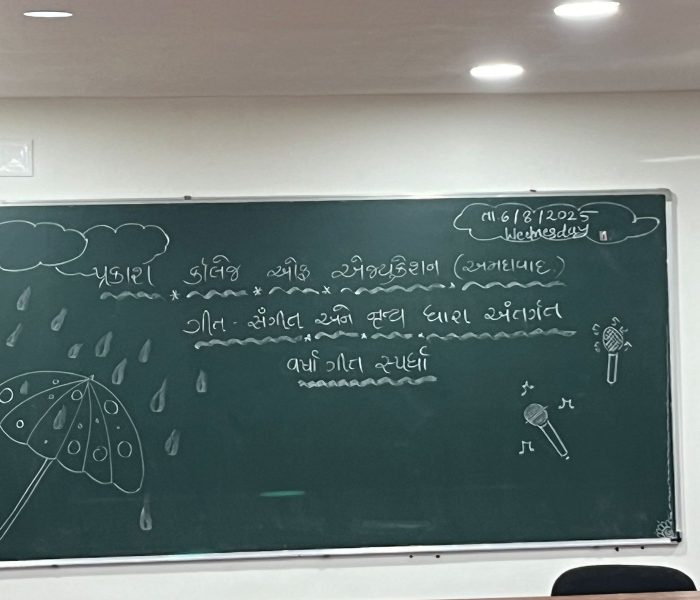 તા 6/8/2025
Wednesday
પ્રકાશ કૉલેજ ઓફ એજ્યુકેશન (અમદાવાદ.)
ગીત - સંગીત અને નૃત્ય ધારા અંતર્ગત
વર્ષા ગીત સ્પર્ધા